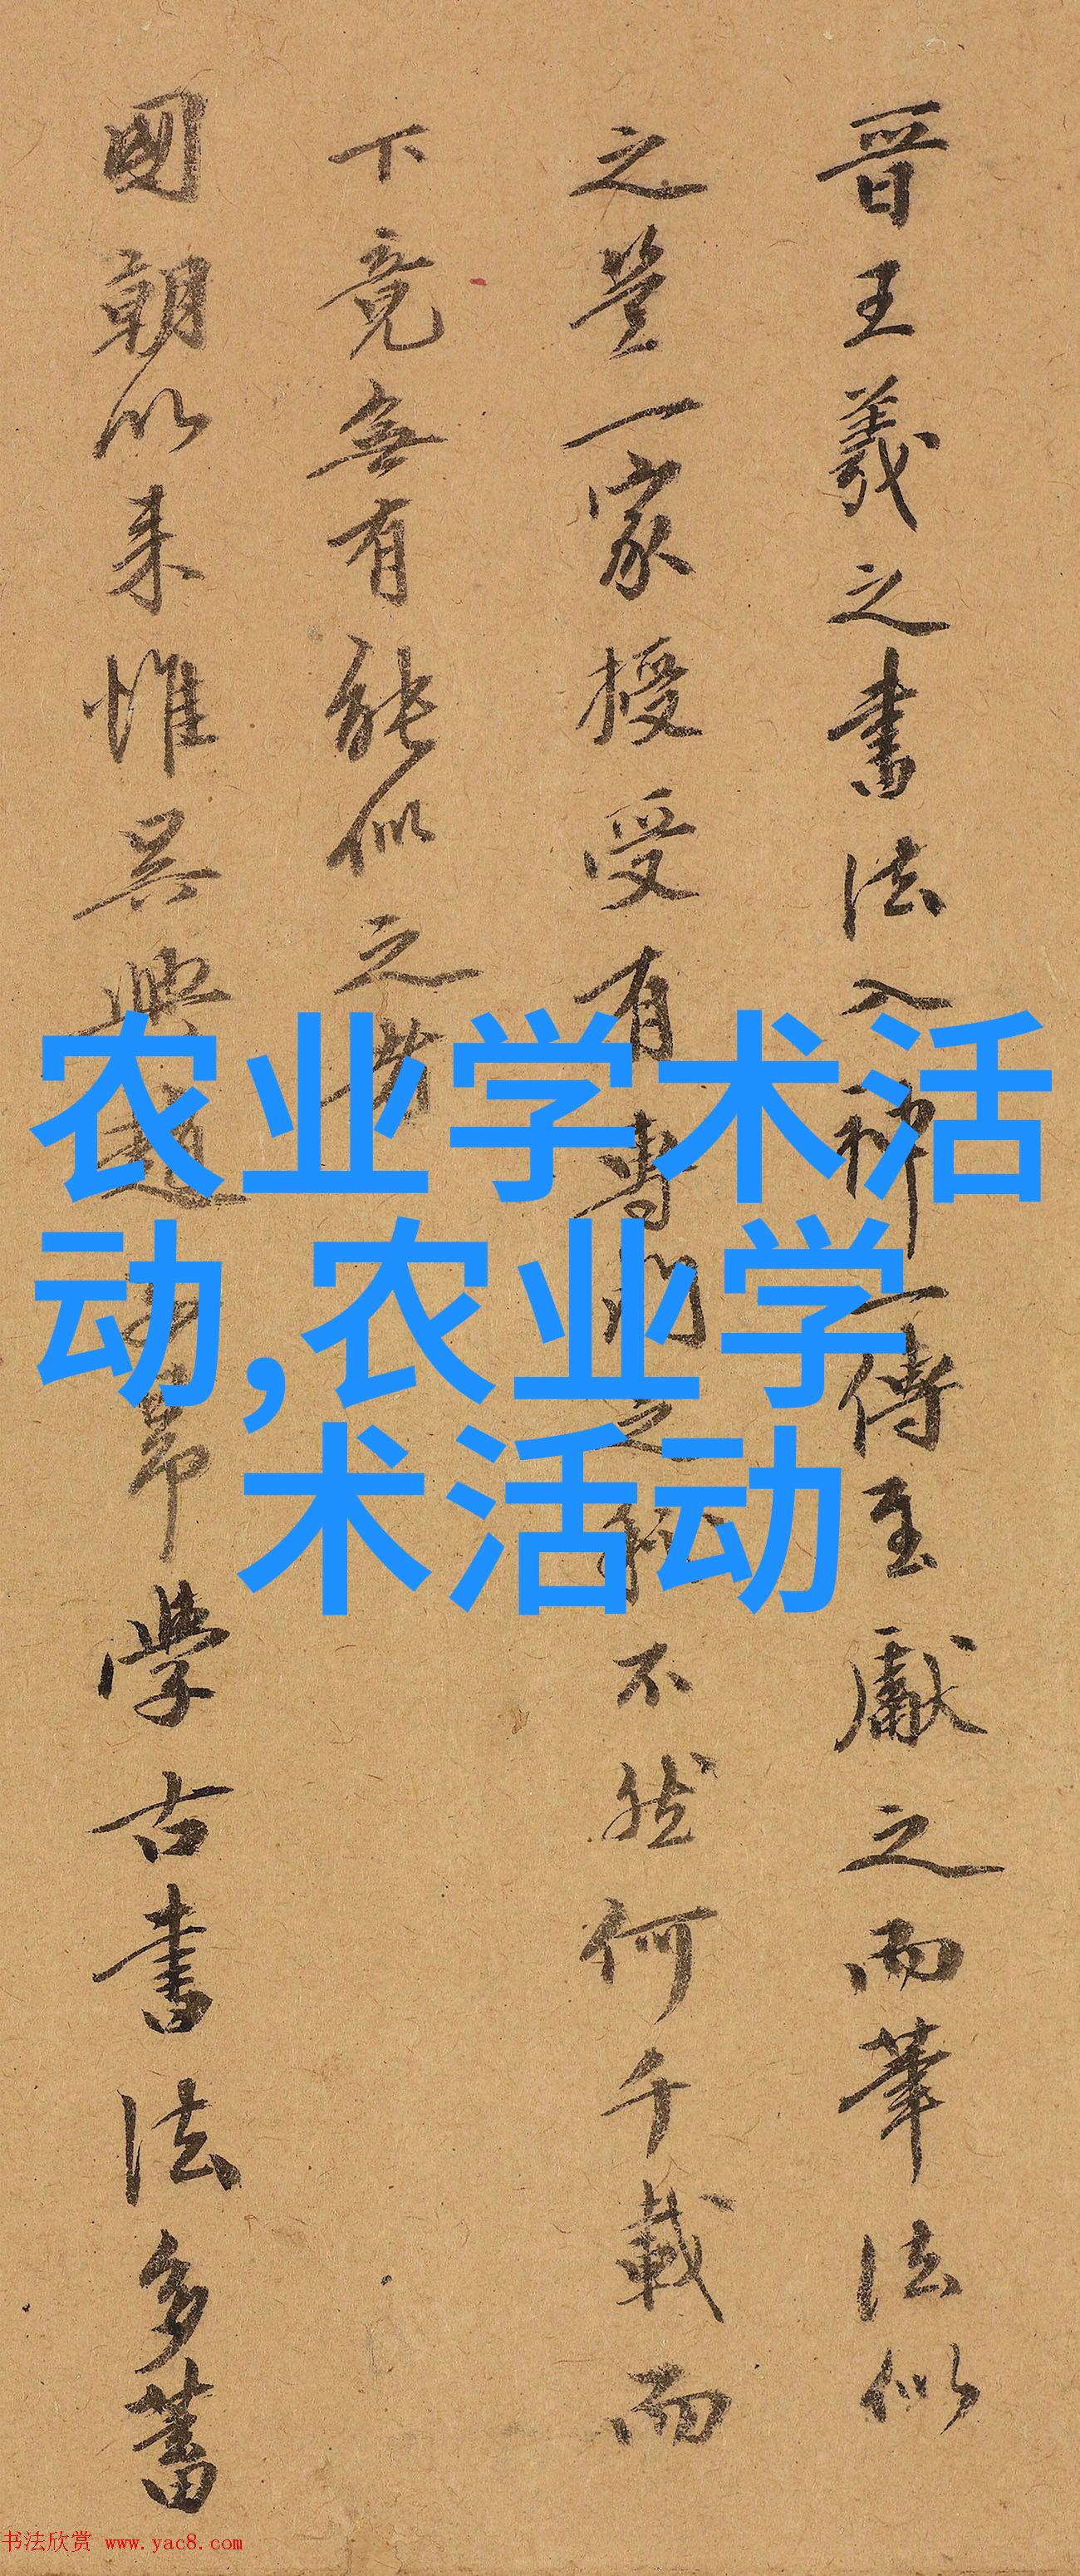 晋王羲之書法入神一傳至獻之而筆法似
之豈一家授受有專門之不然何千載而
下竟無有能似之者
國朝以来惟吴興趙學古書法多蓄
农业学术活
动,农业学
术活动
书法欣赏 www.yac8.com